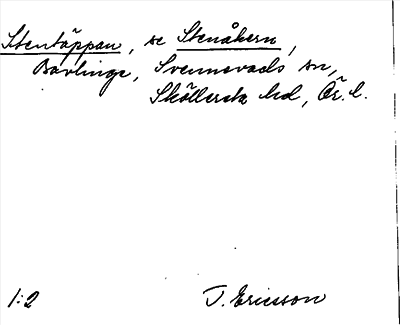 Stentäppan, se Stenåkern,
Bavlinge, Svennevads sn,
Sköllersta hd, Ör. l.
1:2 T. Ericsson